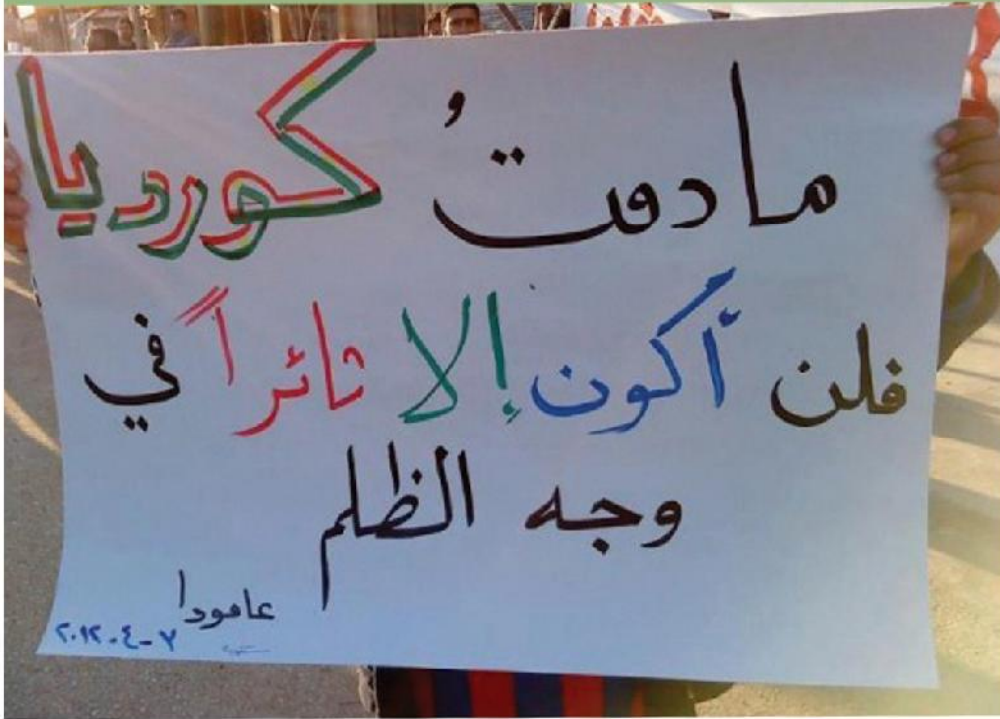 مادمتُ كورديا
فلن أكون إلا ثائراً في
وجه الظلم
عامودا
٧-٤-٢٠١٢